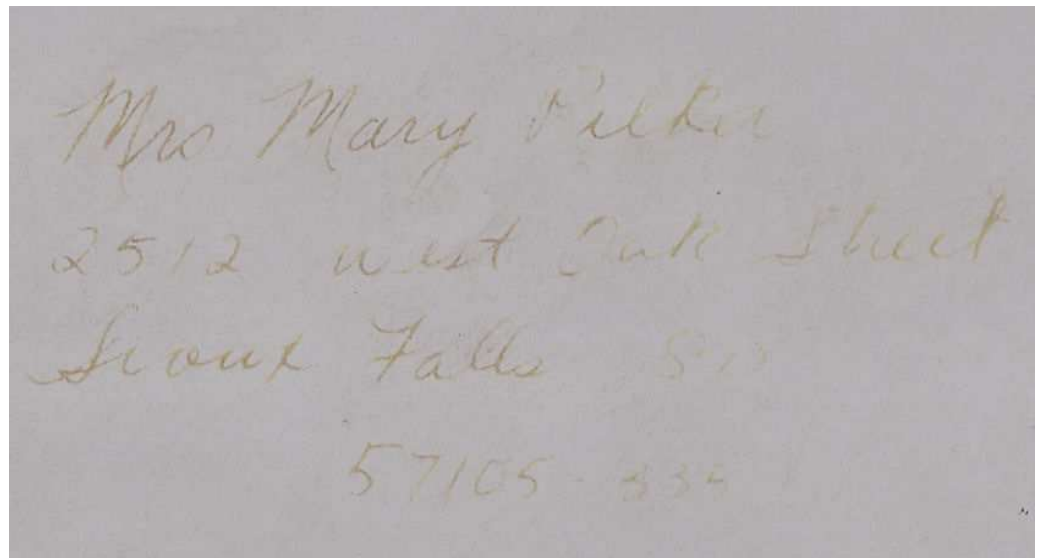 Mrs Mary
2512 west Oak Street
Sioux Falls SD
57105-